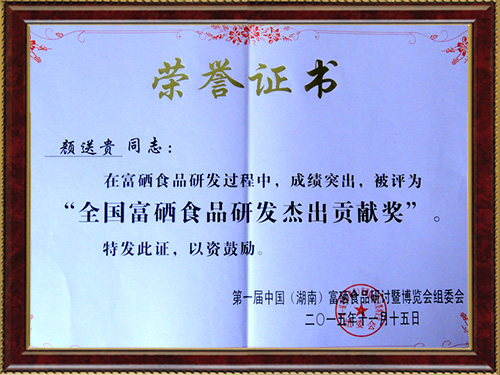 荣誉证书
颜送贵 同志：
在富硒食品研发过程中，成绩突出，被评为
“全国富硒食品研发杰出贡献奖”。
特发此证，以资鼓励。
第一届中国（湖南）富硒食品研讨暨博览会组委会
二〇一五年十一月十五日